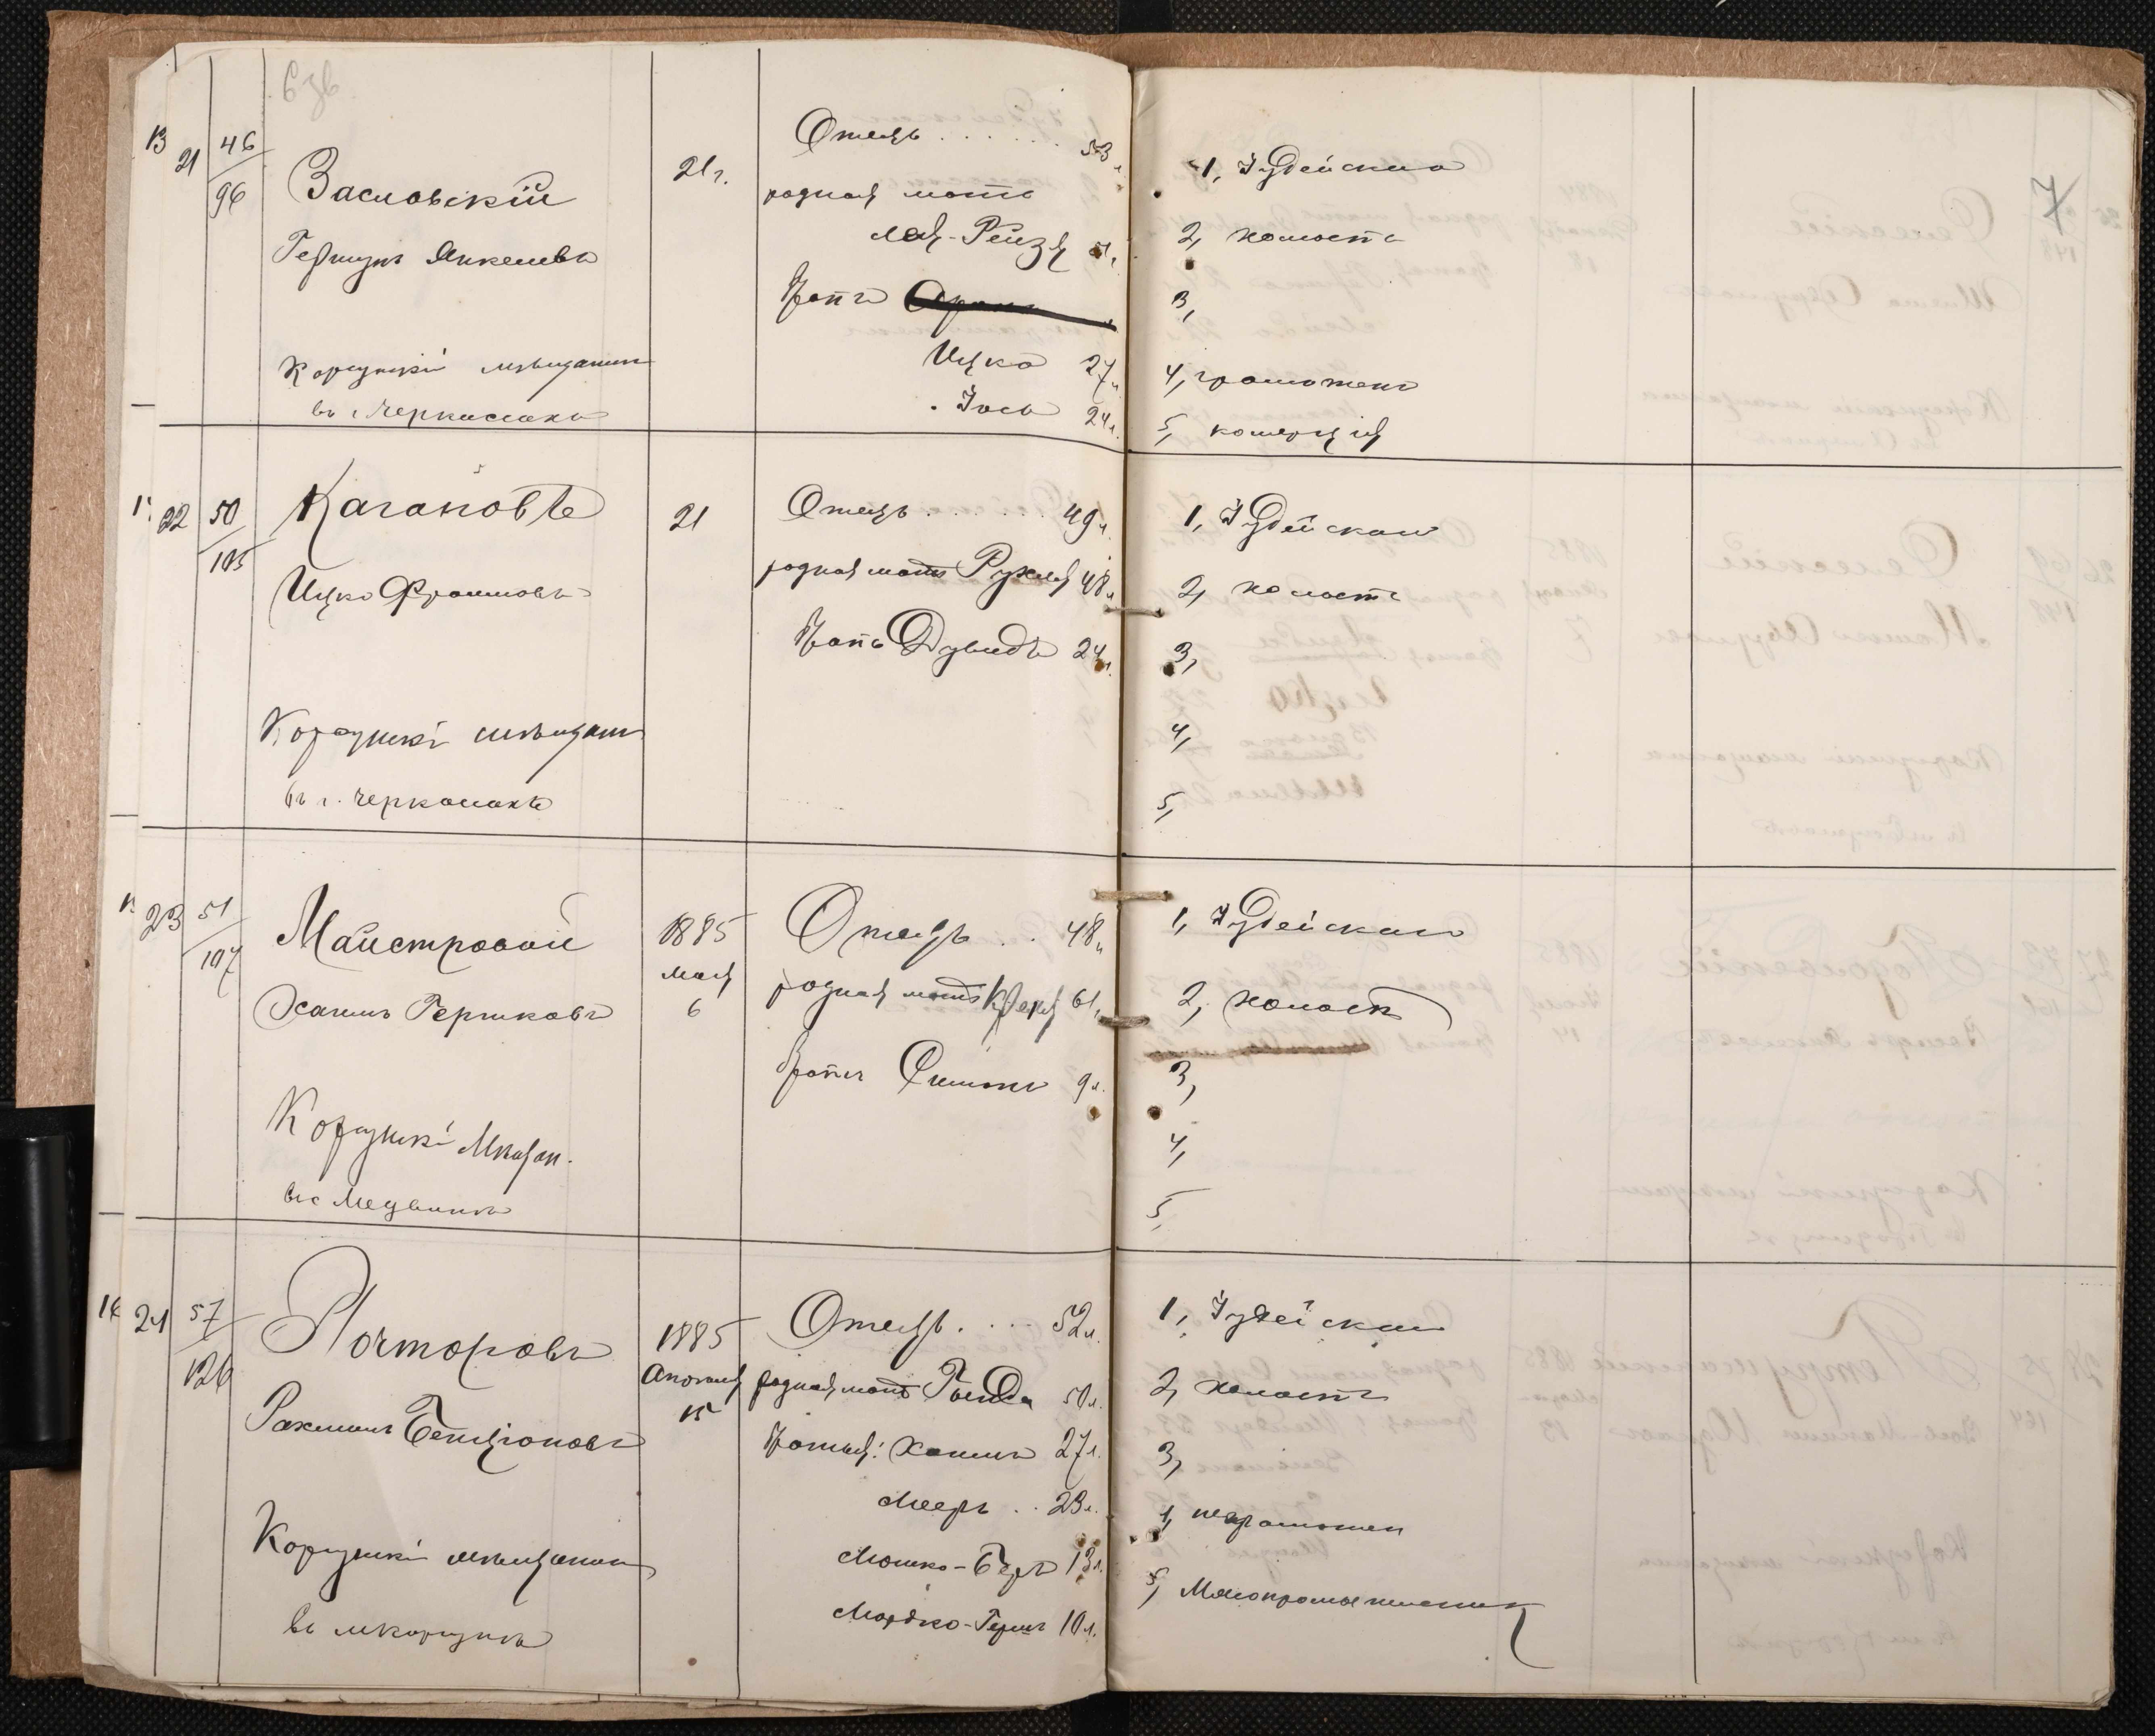 6 зв
13 21 46/96
Заславскій
Гершунъ Янкелевъ
Корсунскій мѣщанинъ
въ г. Черкассахъ
21 г.
Отецъ . . . . . . 53 л.
родная мать
Лея-Рейзя 51 л.
братъ
Ицко 27 л.
Іось 24 л.
1, Іудейскаго
2, холостъ
3,
4, грамотенъ
5, комерція
22 50/105
Кагановъ
Ицко Фроимовъ
Корсунскі мѣщан
въ г. Черкасахъ
21
Отецъ . . . . . . 49 л.
родная мать Рухля 48 л.
братъ Дувидъ 24 л.
1, Іудейскаго
2, холостъ
3,
4,
5,
23 51/107
Майстровой
Хаимъ Гершковъ
Корсунскі Мѣщан.
въ с Медвинѣ
1885
мая
6
Отецъ . . 48 л
родная мать 61 л
братъ 9 л.
1, Іудейскаго
2, холостъ
3,
4,
5,
24 57/126
Почторовъ
Рахмилъ Бенціоновъ
Корсунскі мѣщанинъ
въ м Корсунѣ
1885
15
Отецъ . . . . 52 л.
родная мать 50 л.
братья: Хаимъ 27 л.
Мееръ . . 23 л.
Мошко-Беръ 13 л.
Мордко-Гершъ 10 л.
1, Іудейскаго
2, холостъ
3,
4, неграмотен
5,
7